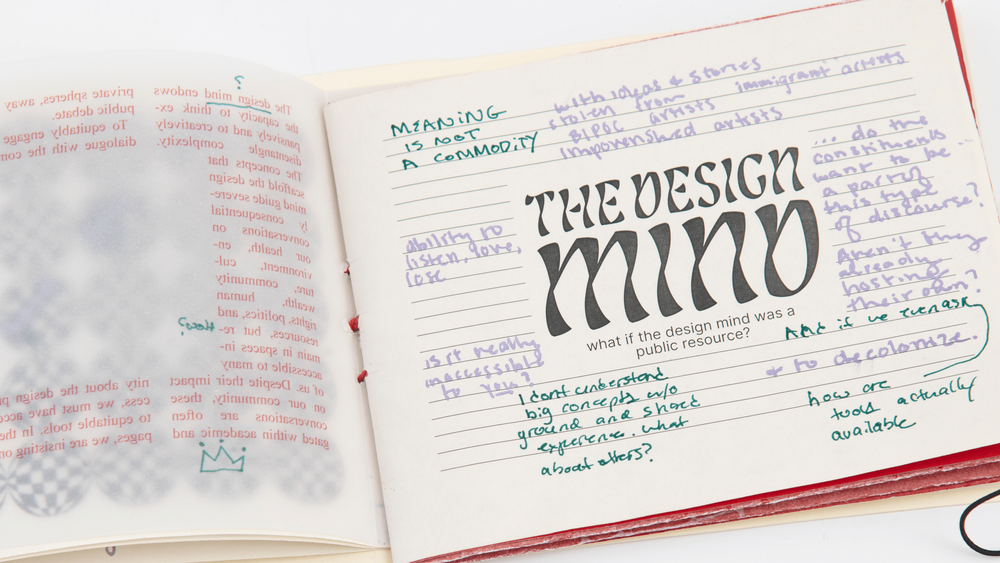 ?
The design mind endows
the capacity to think ex-
pansively and to creatively
disentangle complexity.
The concepts that
scaffold the design
mind guide severe-
ly consequential
conversations on
our health, en-
vironment, cul-
ture, community
wealth, human
rights, politics, and
resources, but re-
main in spaces in-
accessible to many
of us. Despite their impact
on our community, these
conversations are often
gated within academic and
how?
private spheres, away
public debate.
To equitably engage
dialogue with the
nity about the design
cess, we must have
to equitable tools. In
pages, we are insisting on
MEANING
IS NOT
A COMMODITY
with ideas & stories
stolen from immigrant artists
BIPOC artists
impoverished artists
... do the
constituents
want to be
a part of
this type
of discourse?
Aren't they
already
hosting
their own?
ability to
listen, love,
lose
THE DESIGN
MIND
what if the design mind was a
public resource?
is it really
inaccessible
to you?
And if we even ask
* to decolonize.
I dont understand
big concepts w/o
ground and shared
experience. what
about others?
how are
tools actually
available